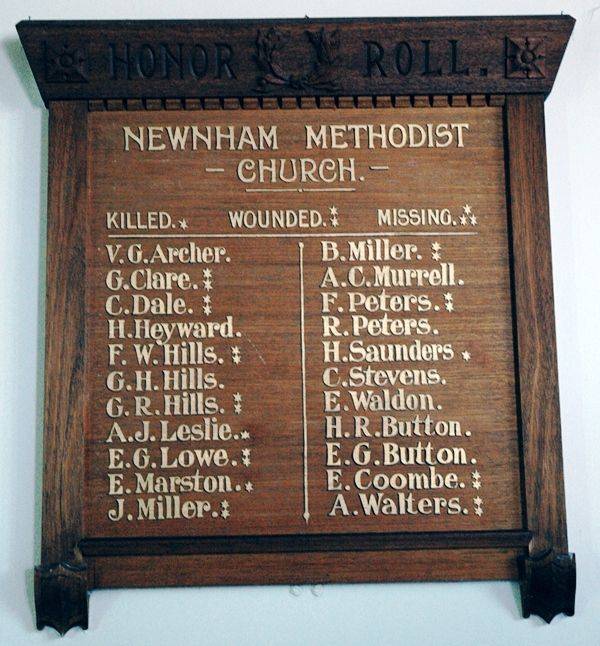 HONOR ROLL.
NEWNHAM METHODIST
- CHURCH. -
KILLED. * WOUNDED. ** MISSING. ***
V. G. Archer.
G. Clare. **
C. Dale. **
H. Heyward.
F. W. Hills. **
G. H. Hills.
G. R. Hills. **
A. J. Leslie. *
E. G. Lowe. **
E. Marston. *
J. Miller. **
B. Miller. **
A. C. Murrell.
F. Peters. **
R. Peters.
H. Saunders *
C. Stevens.
E. Waldon.
H. R. Button.
E. G. Button.
E. Coombe. **
A. Walters. **